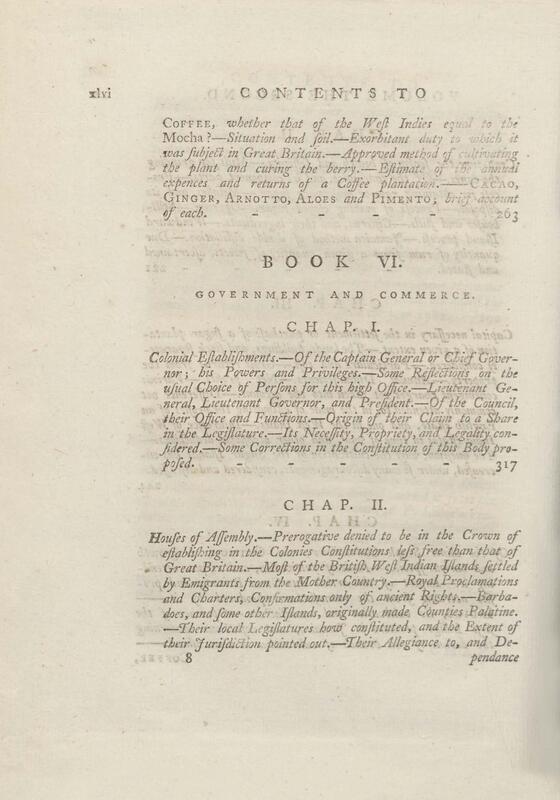 xlvi CONTENTS TO
COFFEE, whether that of the Weſt Indies equal to the
Mocha?—Situation and ſoil.—Exorbitant duty to which it
was ſubject in Great Britain.—Approved method of cultivating
the plant and curing the berry.—Eſtimate of the annual
expences and returns of a Coffee plantation.——CACAO,
GINGER, ARNOTTO, ALOES and PIMENTO; brief account
of each. - - - - - 263
BOOK VI.
GOVERNMENT AND COMMERCE.
CHAP. I.
Colonial Eſtabliſhments.—Of the Captain General or Chief Gover-
nor; his Powers and Privileges.—Some Reflections on the
uſual Choice of Perſons for this high Office.—Lieutenant Ge-
neral, Lieutenant Governor, and Preſident.—Of the Council,
their Office and Functions.—Origin of their Claim to a Share
in the Legiſlature.—Its Neceſſity, Propriety, and Legality con-
ſidered.—Some Corrections in the Conſtitution of this Body pro-
poſed. - - - - - 317
CHAP. II.
Houſes of Aſſembly.—Prerogative denied to be in the Crown of
eſtabliſhing in the Colonies Conſtitutions leſs free than that of
Great Britain.—Moſt of the Britiſh Weſt Indian Iſlands ſettled
by Emigrants from the Mother Country.—Royal Proclamations
and Charters, Confirmations only of ancient Rights.—Barba-
does, and ſome other Iſlands, originally made Counties Palatine.
—Their local Legiſlatures how conſtituted, and the Extent of
their Juriſdiction pointed out.—Their Allegiance to, and De-
8 pendance